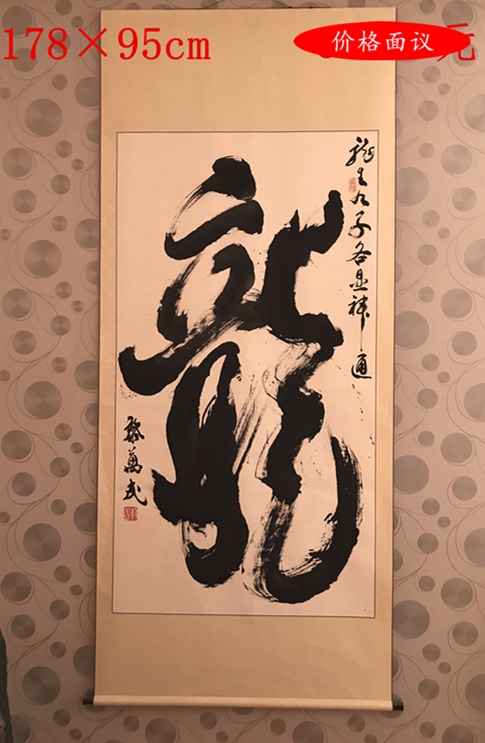 178×95cm
价格面议
元
龍
龍生九子各显神通
張萬武